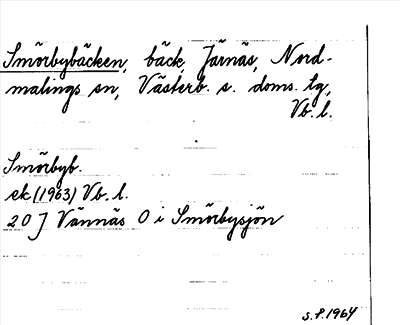 Smörbybäcken, bäck, Järnäs, Nord-
malings sn, Västerb. s. doms. lg,
Vb. l.
Smörbyb.
ek (1963) Vb. l.
20 J Vännäs O i Smörbysjön
S.F. 1964